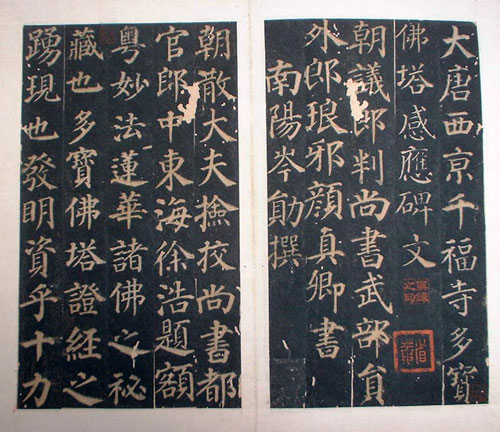 大唐西亰千福寺多寶
佛塔感應碑文
朝議郎判尚書武部貟
外郎琅邪顏真卿書
南陽岑勛撰
朝散大夫撿挍尚書都
官郎中東海徐浩題額
粵妙法蓮華諸佛之祕
藏也多寶佛塔證經之
踴現也發明資乎十力